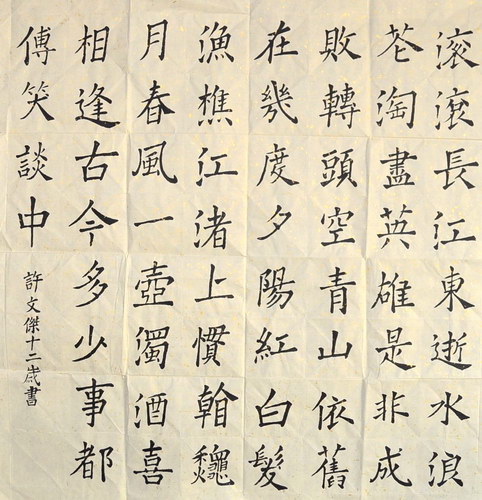 滚滾長江東逝水浪
花淘盡英雄是非成
敗轉頭空青山依舊
在幾度夕陽紅白髮
漁樵江渚上慣看龝
月春風一壺濁酒喜
相逢古今多少事都
傅笑談中
許文傑十二歲書